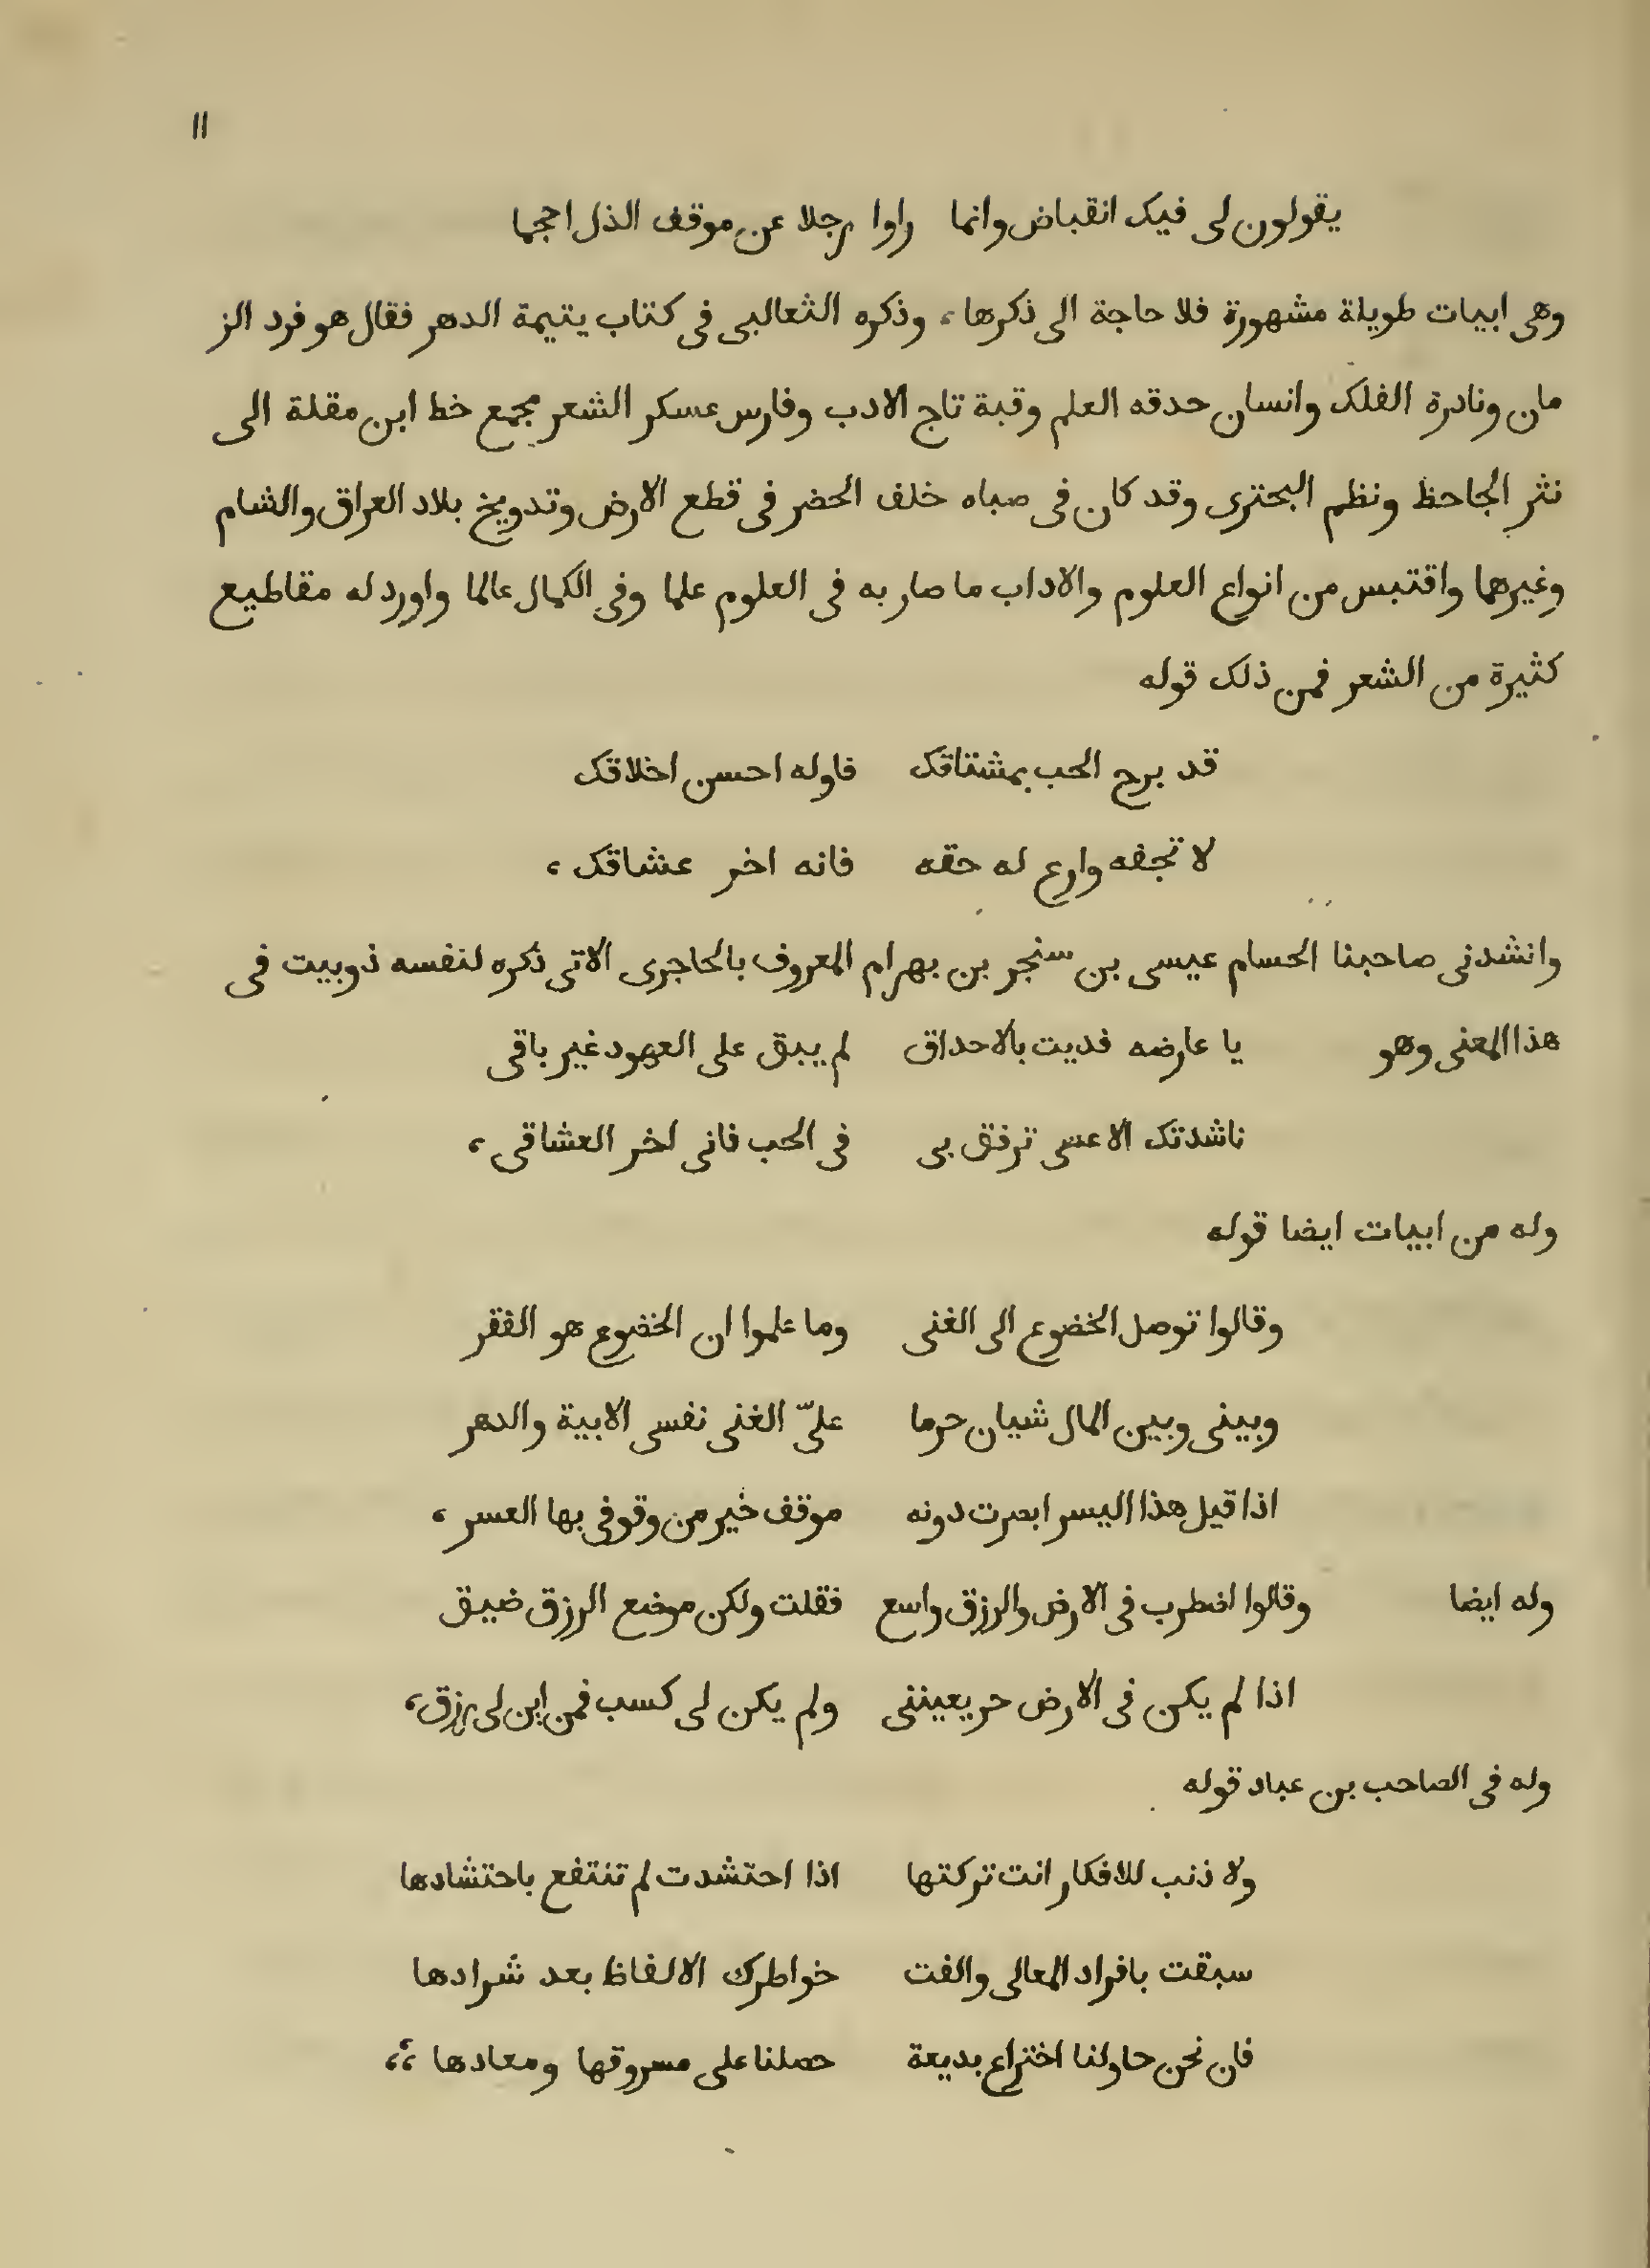 ١١
يقولون لى فيك انقباض وانما راوا رجلا عن موقف الذل احجما
وهى ابيات طويلة مشهورة فلا حاجة الى ذكرها، وذكره الثعالبى فى كتاب يتيمة الدهر فقال هو فرد الز
مان ونادرة الفلك وانسان حدقه العلم وقبة تاج الادب وفارس عسكر الشعر مجمع خط ابن مقلة الى
نثر الجاحظ ونظم البحترى وقد كان فى صباه خلف الحضر فى قطع الارض وتدويخ بلاد العراق والشام
وغيرهما واقتبس من انواع العلوم والاداب ما صار به فى العلوم علما وفى الكمال عالما واورد له مقاطيع
كثيرة من الشعر فمن ذلك قوله
قد برح الحب بمشتاقك فاوله احسن اخلاقك
لا تجفه وارع له حقه فانه اخر عشاقك،
وانشدنى صاحبنا الحسام عيسى بن سنجر بن بهرام المعروف بالحاجرى الاتى ذكره لنفسه ذوبيت فى
هذا المعنى وهو يا عارضه فديت بالاحداق لم يبق على العهود غير باقى
ناشدتك الا عسى ترفق بى فى الحب فانى اخر العشاقى،
وله من ابيات ايضا قوله
وقالوا توصل الخضوع الى الغنى وما علموا ان الخضوع هو الفقر
وبينى وبين المال شيان حرما علىّ الغنى نفسى الابية والدهر
اذا قيل هذا اليسر ابصرت دونه موقف خير من وقوفى بها العسر،
وله ايضا وقالوا اضطرب فى الارض والرزق واسع فقلت ولكن موضع الرزق ضيق
اذا لم يكن فى الارض حر يعيننى ولم يكن لى كسب فمن اين لى رزق،
وله فى الصاحب بن عباد قوله
ولا ذنب للافكار انت تركتها اذا احتشدت لم تنتفع باحتشادها
سبقت بافراد المعالى والفت خواطرك الالفاظ بعد شرادها
فان نحن حاولنا اختراع بديعة حصلنا على مسروقها ومعادها ،،